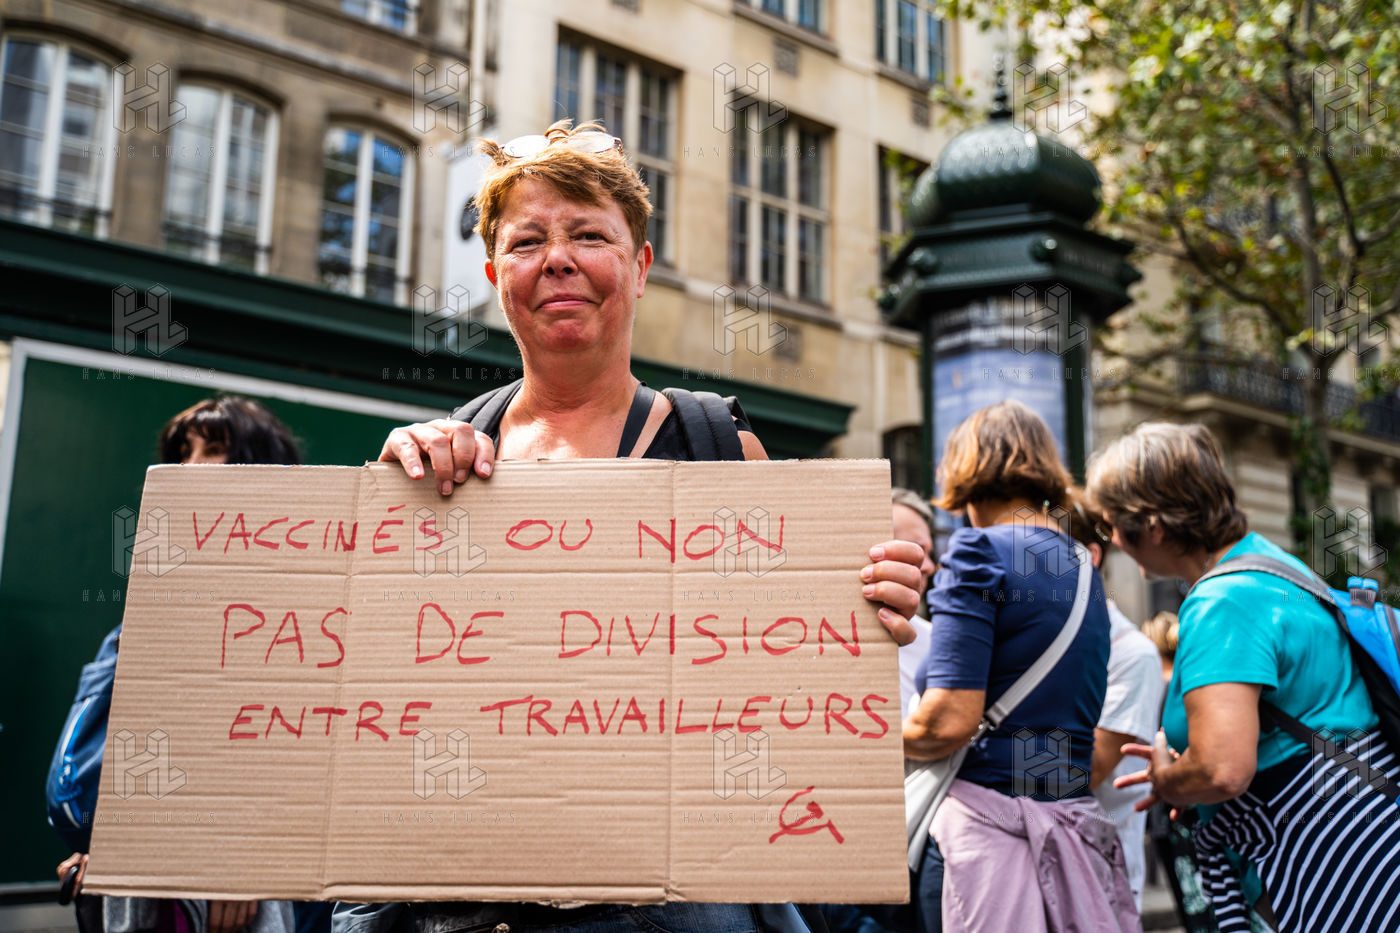 VACCINÉS OU NON
PAS DE DIVISION
ENTRE TRAVAILLEURS
HANS LUCAS